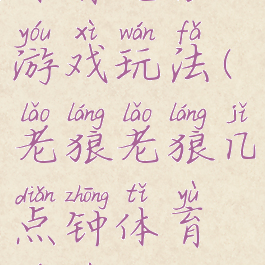 yóu xì wán fǎ
游戏玩法(
lǎo láng lǎo láng jǐ
老狼老狼几
diǎn zhōng tǐ yù
点钟体育